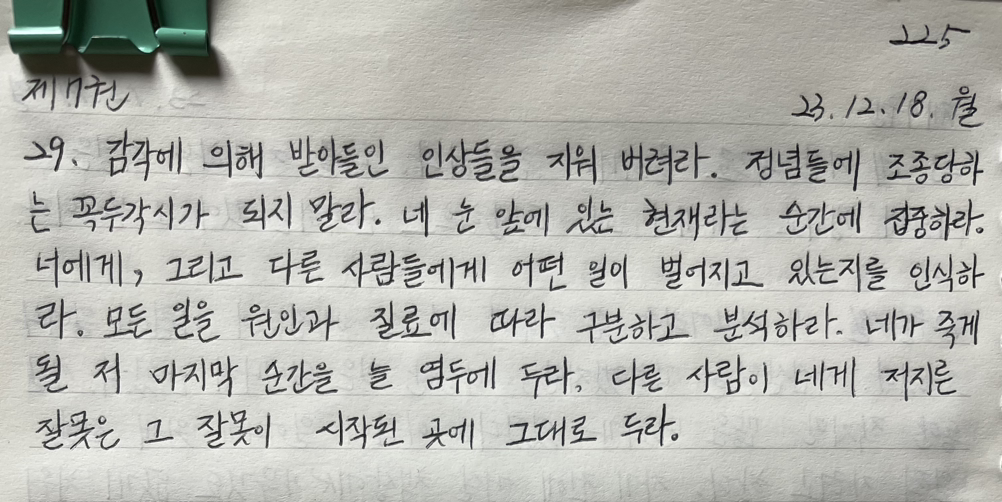 225
제7권
23.12.18. 월
29. 감각에 의해 받아들인 인상들을 지워 버려라. 정념들에 조종당하
는 꼭두각시가 되지 말라. 네 눈 앞에 있는 현재라는 순간에 집중하라.
너에게, 그리고 다른 사람들에게 어떤 일이 벌어지고 있는지를 인식하
라. 모든 일을 원인과 질료에 따라 구분하고 분석하라. 네가 죽게
될 저 마지막 순간을 늘 염두에 두라. 다른 사람이 네게 저지른
잘못은 그 잘못이 시작된 곳에 그대로 두라.